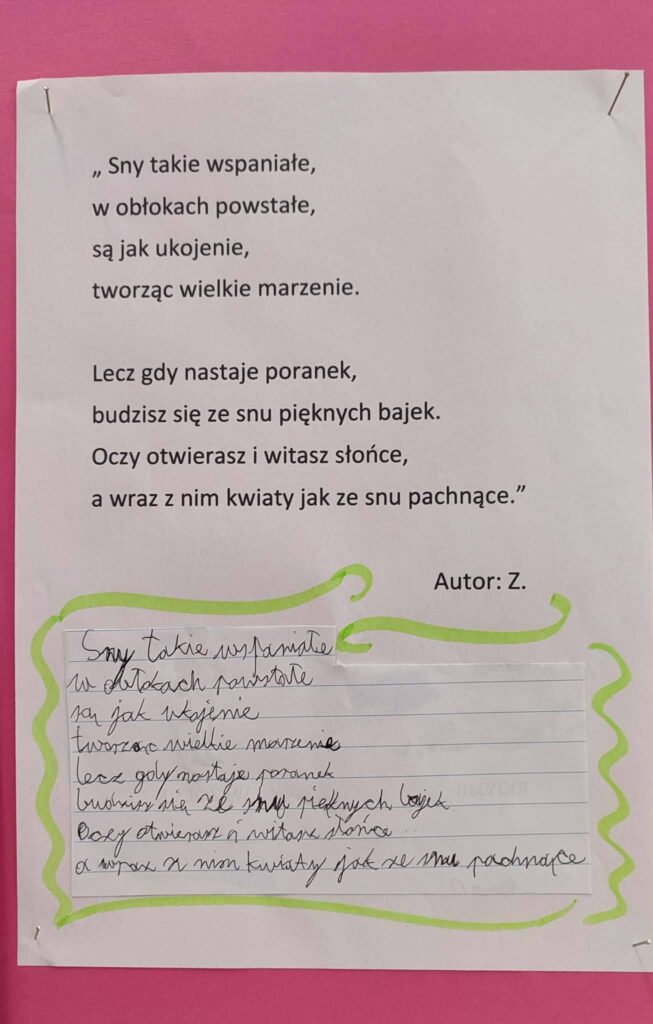 „ Sny takie wspaniałe,
w obłokach powstałe,
są jak ukojenie,
tworząc wielkie marzenie.
Lecz gdy nastaje poranek,
budzisz się ze snu pięknych bajek.
Oczy otwierasz i witasz słońce,
a wraz z nim kwiaty jak ze snu pachnące.”
Autor: Z.
Sny takie wspaniałe
w obłokach powstałe
są jak ukojenie
tworząc wielkie marzenie
lecz gdy nastaje poranek
budzisz się ze snu pięknych bajek
Oczy otwierasz i witasz słońce
a wraz z nim kwiaty jak ze snu pachnące